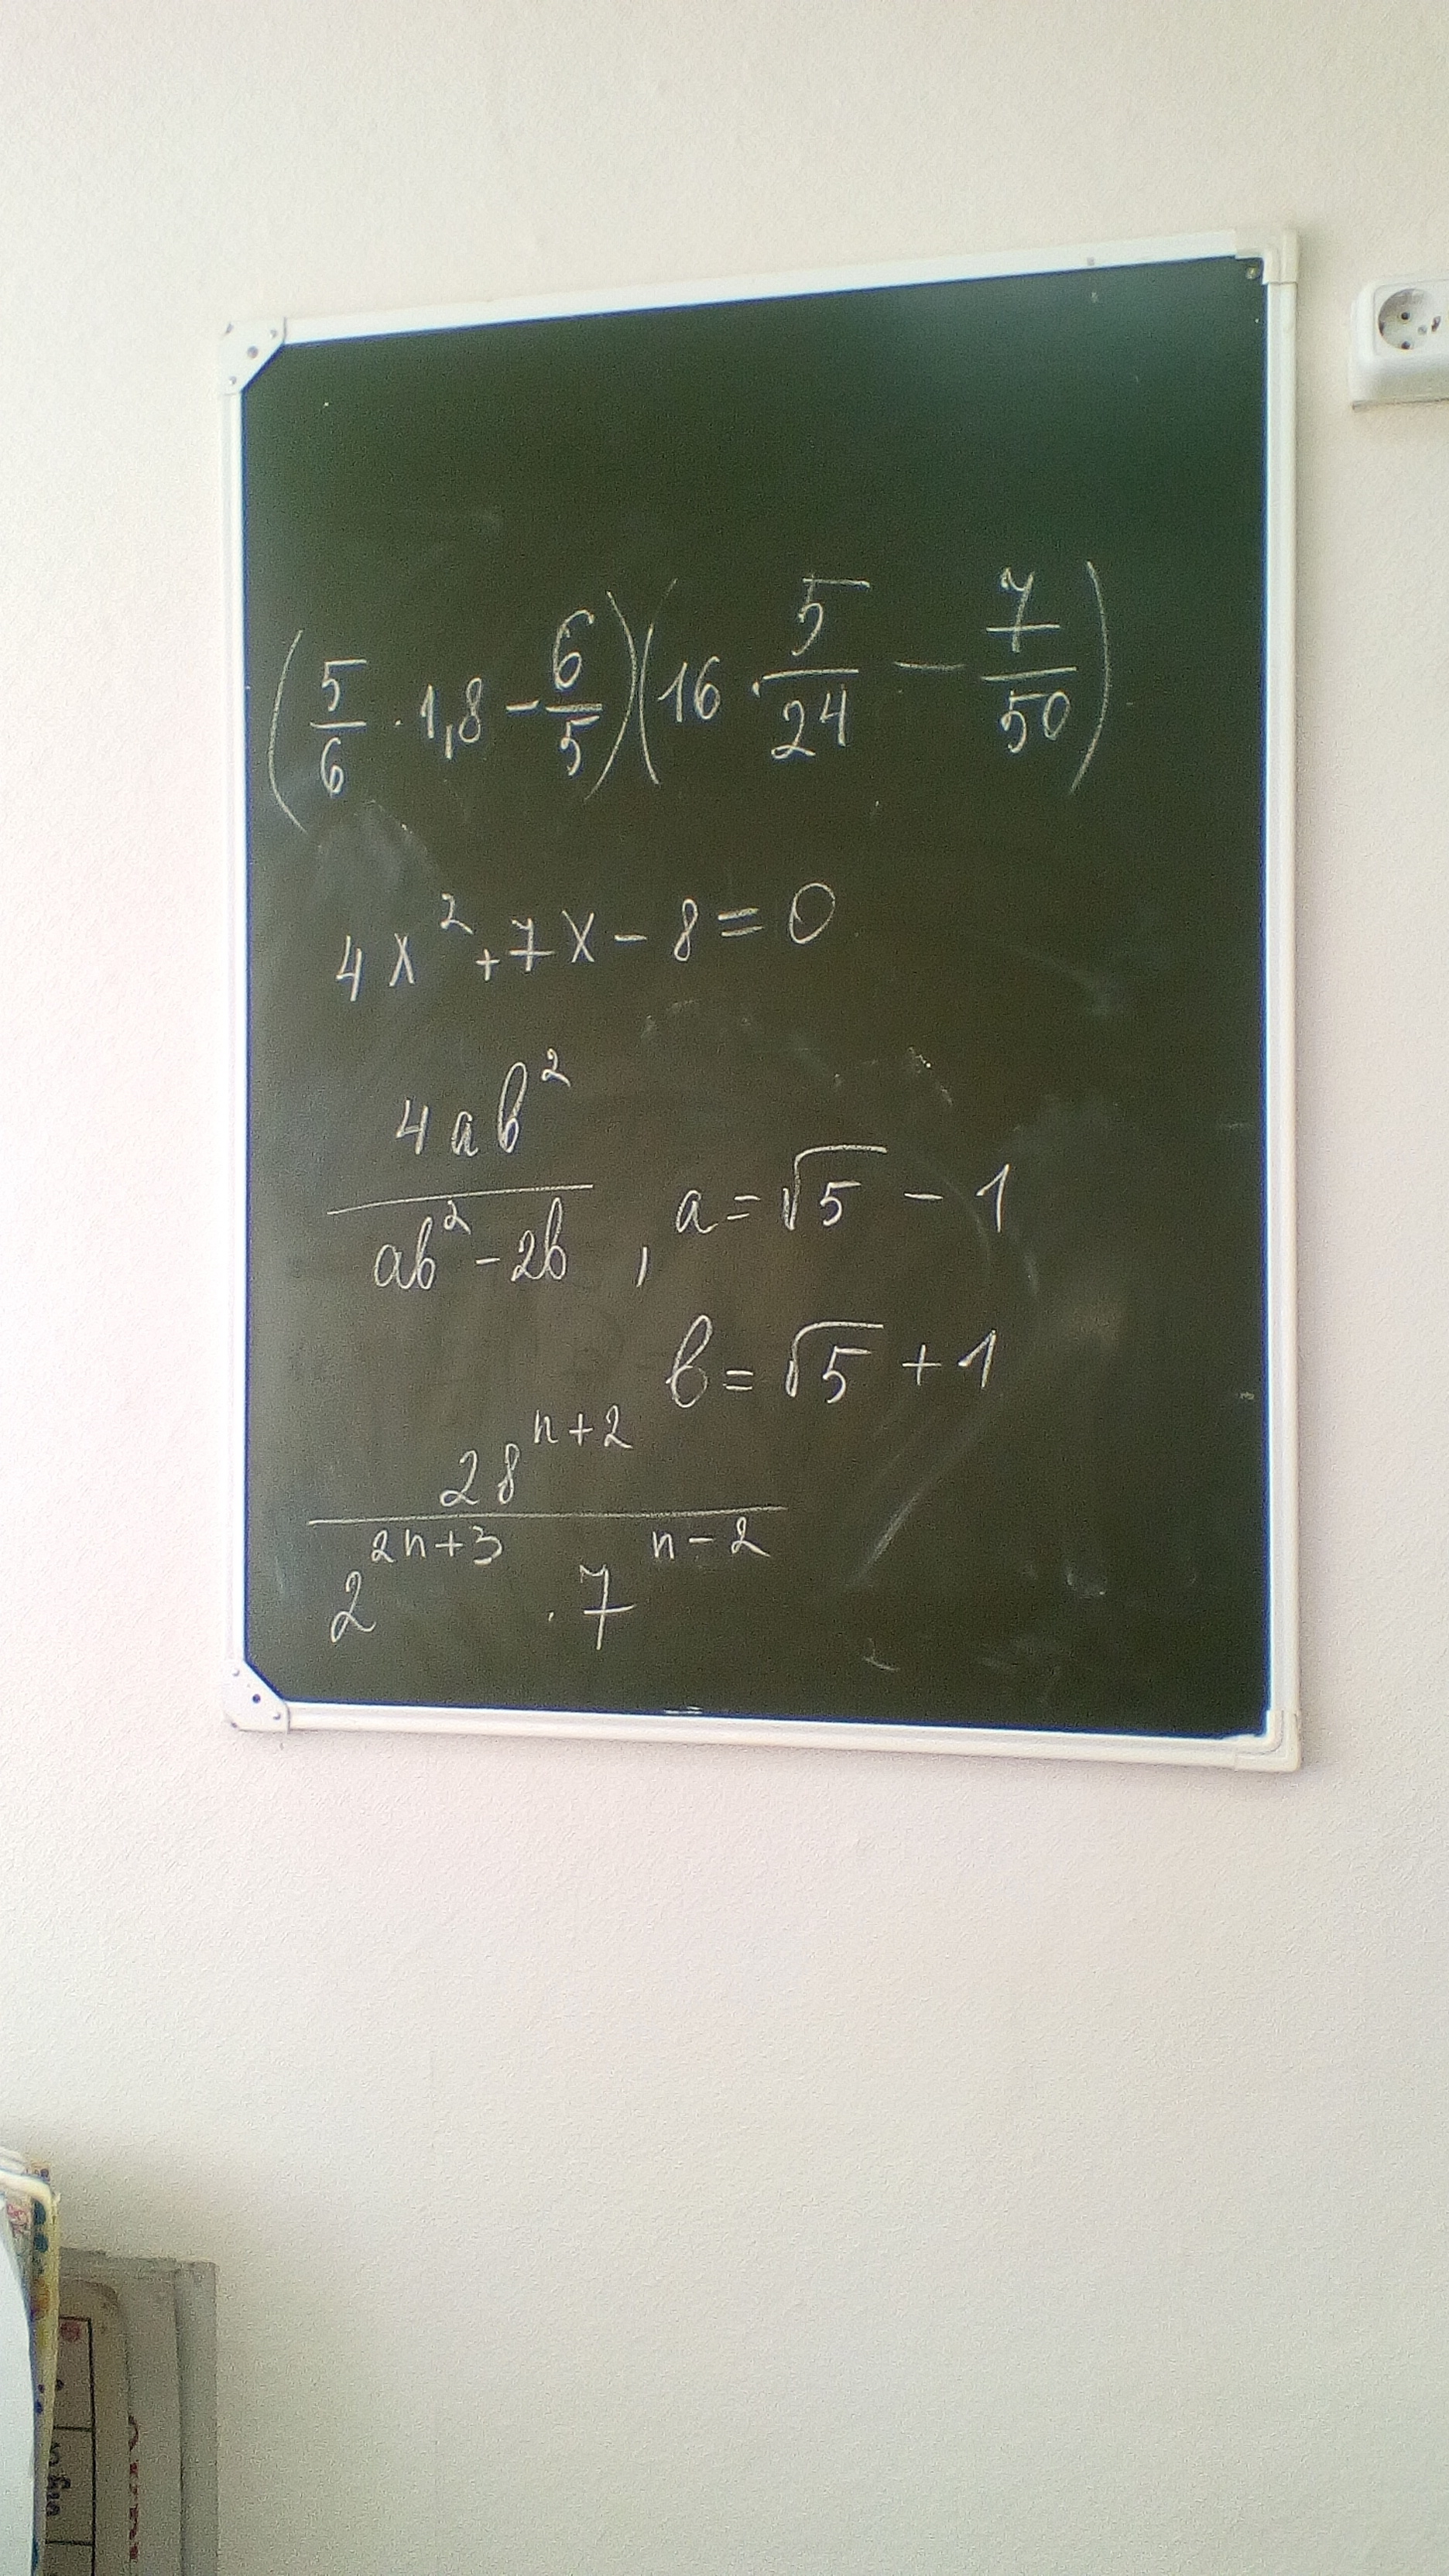 (5/6 · 1,8 − 6/5)(16 · 5/24 − 7/50)
4x² + 7x − 8 = 0
4ab² / ab² − 2b , a = √5 − 1
b = √5 + 1
28^(n+2) / 2^(2n+3) · 7^(n−2)